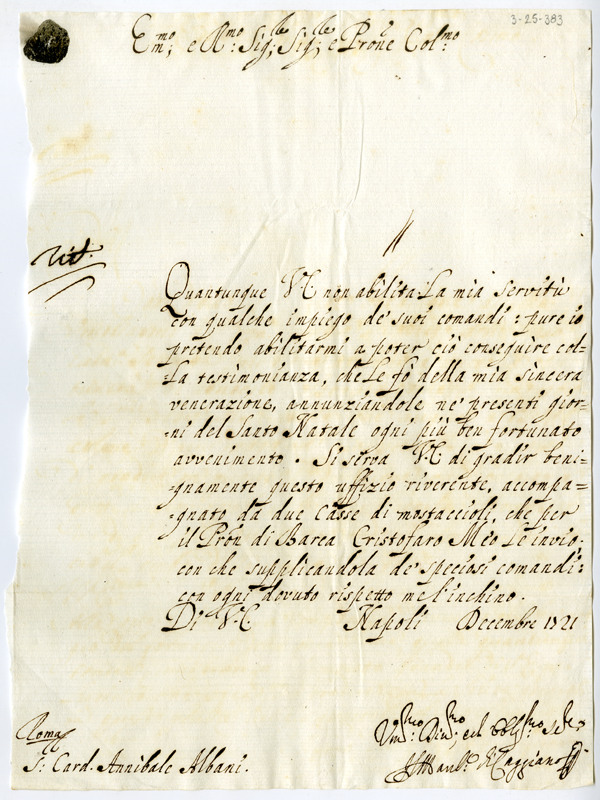 3-25-383
Em:mo e R:mo Sig:re Sig:re e Prone Col:mo
Quantunque V.E. non abilita la mia servitù
con qualche impiego de' suoi comandi: pure io
pretendo abilitarmi a poter ciò conseguire col=
=la testimonianza, che Le fò della mia sincera
venerazione, annunziandole ne' presenti gior=
=ni del Santo Natale ogni più ben fortunato
avvenimento. Si serva V.E. di gradir beni=
=gnamente questo uffizio riverente, accompa=
=gnato da due Casse di mostaccioli, che per
il Pròn di Barca Cristofaro Meo Le invio;
con che supplicandola de' speciosi comandi:
con ogni dovuto rispetto me l'inchino.
Di V.E. Napoli Decembre 1721
Roma
S: Card. Annibale Albani.